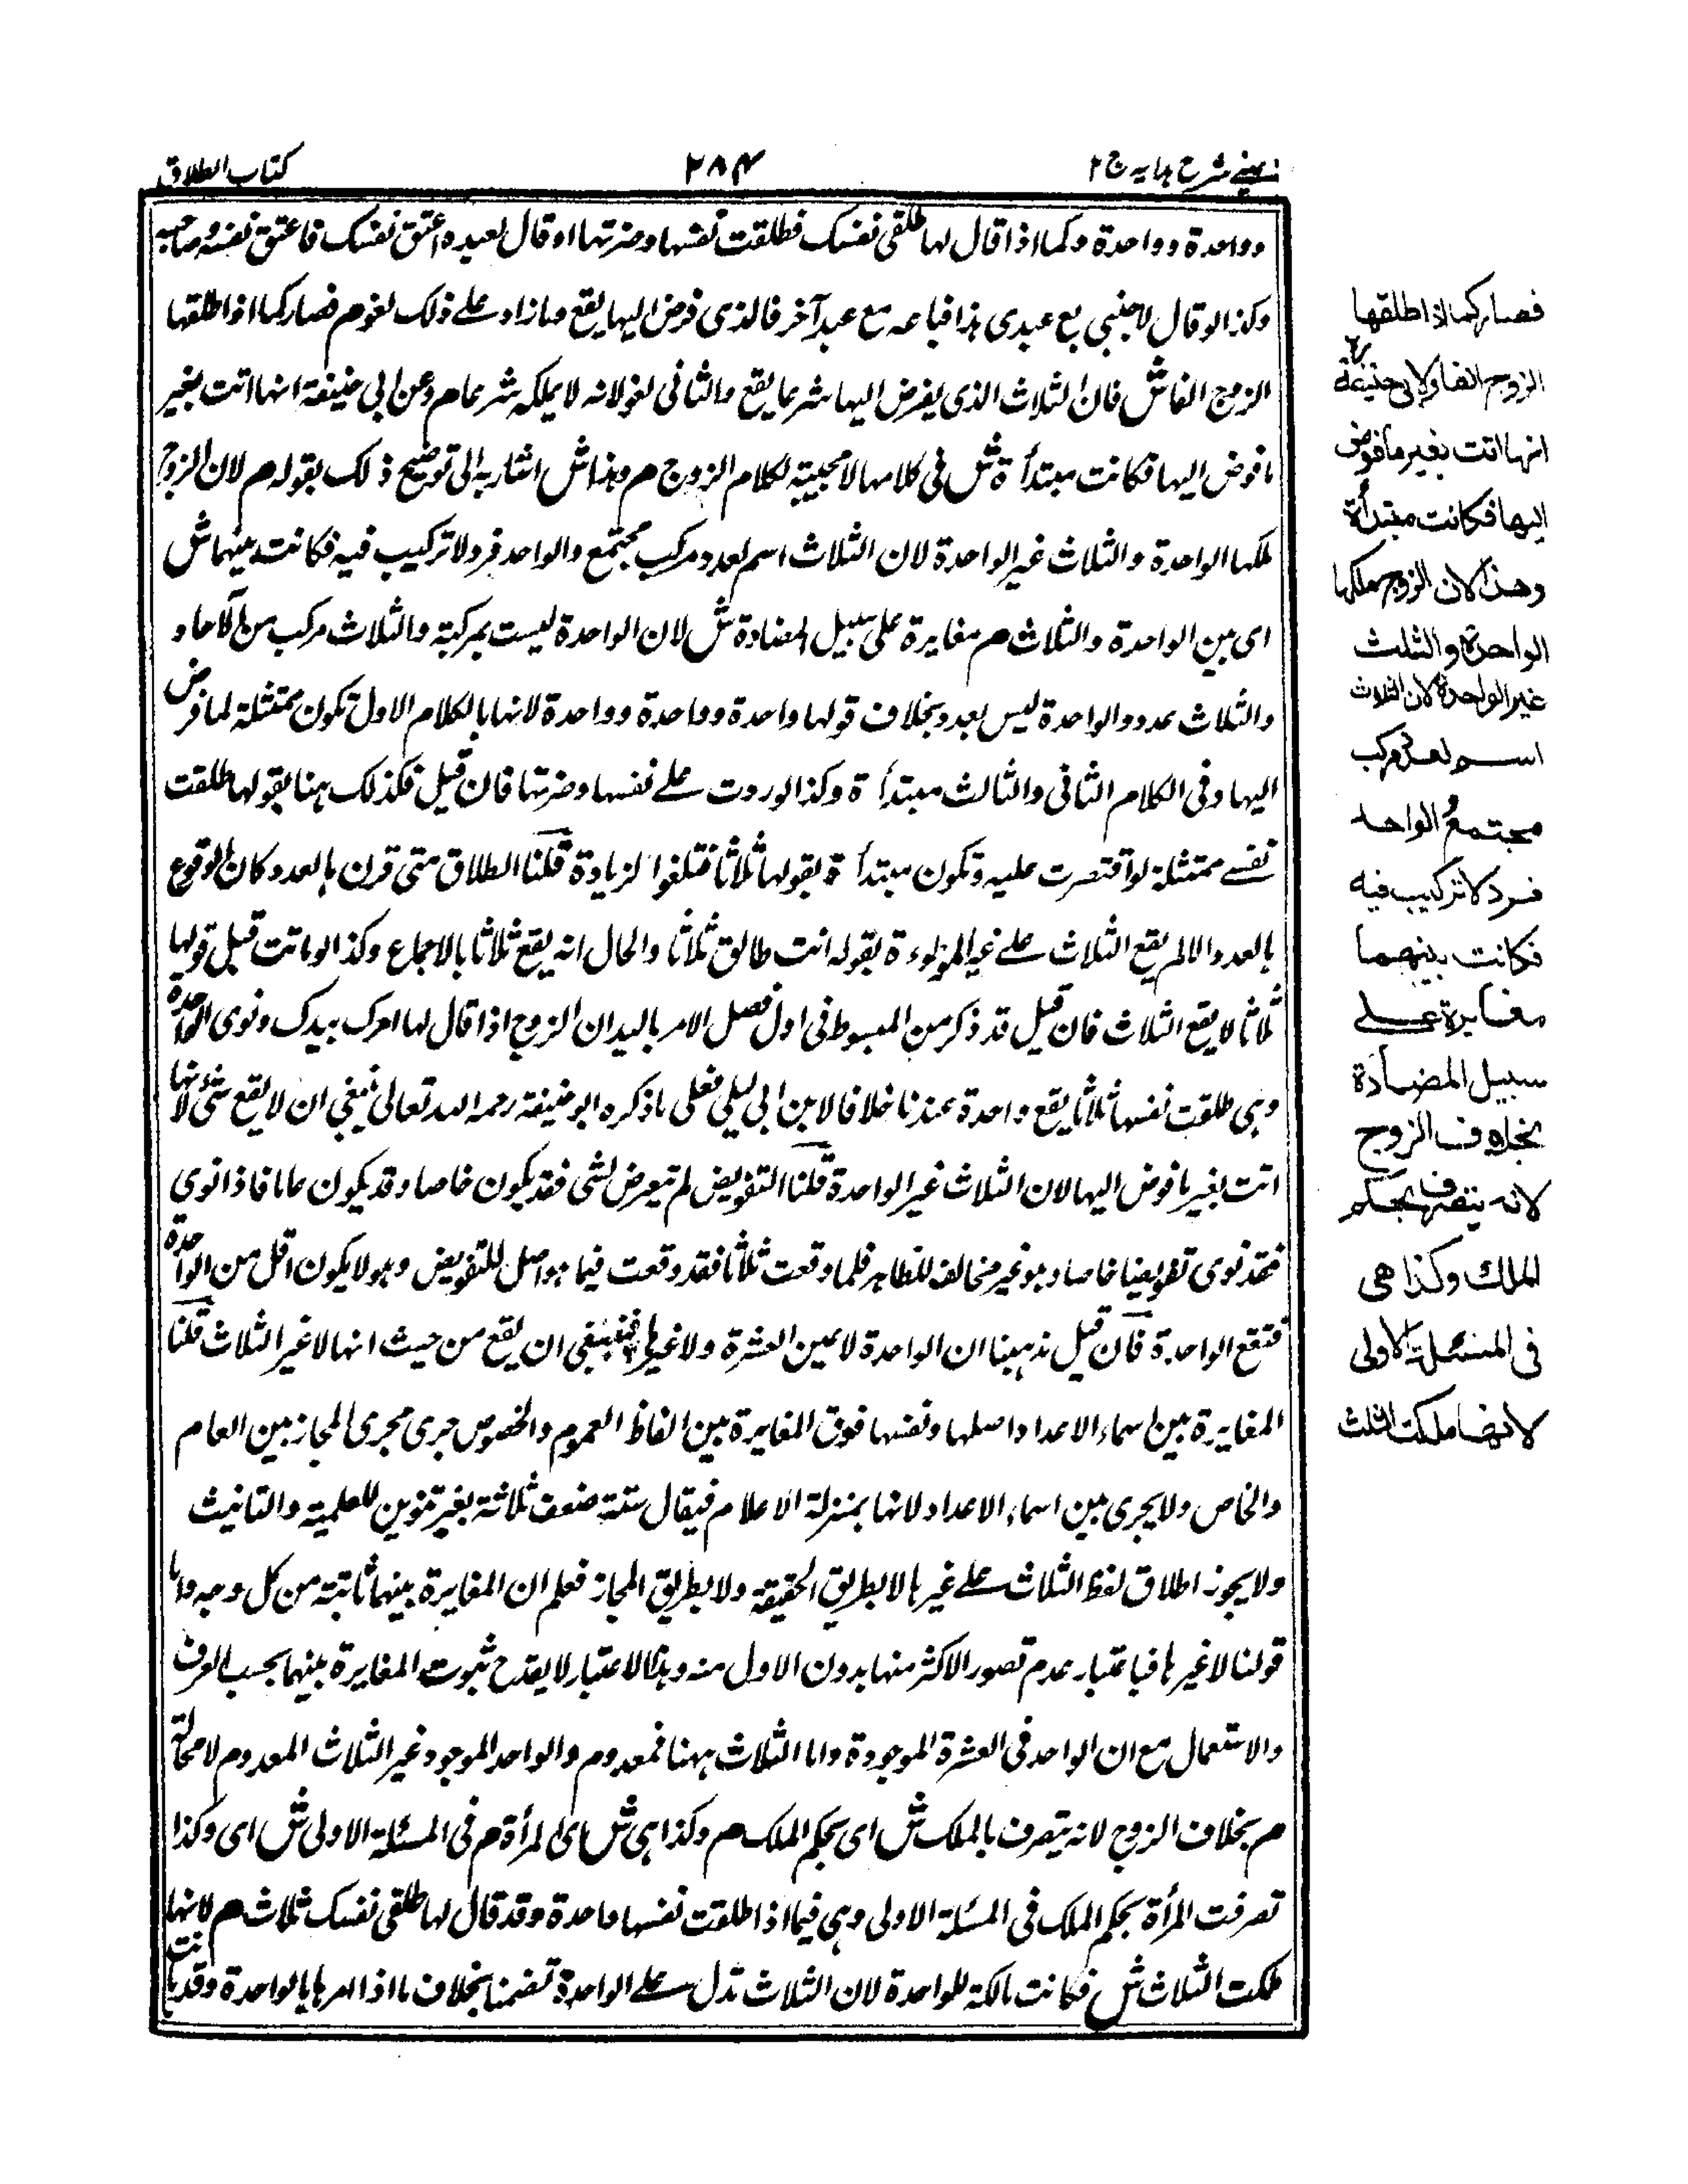 عينى شرح هدايه ج ٢
٢٨٤
كتاب الطلاق
وواحدة وواحدة وكما اذا قال لها طلقى نفسك فطلقت نفسها وضرتها او قال لعبده اعتق نفسك فاعتق نفسه وصاحبه
وكذا لو قال لاجنبي بع عبدى هذا فباعه مع عبد آخر فالذى فوض اليها يقع وما زاد على ذلك لغو م فصار كما اذا طلقها
الزوج الفا ش فان الثلاث الذى يفوض اليها شرعا يقع والثانى لغو لانه لا يملكه شرعا م وعن ابى حنيفة انها اتت بغير
ما فوض اليها فكانت مبتدأة ش فى كلامها لا مجيبة لكلام الزوج م وهذا ش اشار به الى توضيح ذلك بقوله م لان الزوج
ملكها الواحدة والثلاث غير الواحدة لان الثلاث اسم لعدد مركب مجتمع والواحد فرد لا تركيب فيه فكانت بينهما ش
اى بين الواحدة والثلاث م مغايرة على سبيل المضادة ش لان الواحدة ليست بمركبة والثلاث مركب من الآحاد
والثلاث عدد والواحدة ليس بعدد بخلاف قولها واحدة وواحدة وواحدة لانها بالكلام الاول تكون ممتثلة لما فوض
اليها وفى الكلام الثانى والثالث مبتدأة وكذا لو ردت على نفسها وضرتها فان قيل فكذلك ههنا بقولها طلقت
نفسے ممتثلة لو اقتصرت عليه وتكون مبتدأة بقولها ثلاثا فتلغوا الزيادة قلنا الطلاق متى قرن بالعدد كان الوقوع
بالعدد والا لم يقع الثلاث على غير الموطوءة بقوله انت طالق ثلاثا والحال انه يقع ثلاثا بالاجماع وكذا لو ماتت قبل قولها
ثلاثا لا يقع الثلاث فان قيل قد ذكر من المبسوط فى اول فصل الامر باليد ان الزوج اذا قال لها امرك بيدك ونوى الواحدة
وهى طلقت نفسها ثلاثا يقع واحدة عندنا خلافا لابن ابى ليلى فعلى ما ذكره ابو حنيفة رحمه الله تعالى ينبغى ان لا يقع شئ لانها
اتت بغير ما فوض اليها لان الثلاث غير الواحدة قلنا التفويض لم يتعرض لشئ فقد يكون خاصا وقد يكون عاما فاذا نوى
فقد نوى تفويضا خاصا وهو غير مخالف للظاهر فلما وقعت ثلاثا فقد وقعت فيما هو اصل للتفويض وهو لا يكون اقل من الواحدة
فتقع الواحدة فان قيل مذهبنا ان الواحدة لا عين العشرة ولا غيرها فينبغى ان يقع من حيث انها لا غير الثلاث قلنا
المغايرة بين اسماء الاعداد اصلها ونفسها فوق المغايرة بين الفاظ العموم والخصوص جرى مجرى المجاز بين العام
والخاص ولا يجرى بين اسماء الاعداد لانها بمنزلة الاعلام فيقال ستة ضعف ثلاثة بغير تنوين للعلمية والتانيث
ولا يجوز اطلاق لفظ الثلاث على غيرها لا بطريق الحقيقة ولا بطريق المجاز فعلم ان المغايرة بينهما ثابتة من كل وجه واما
قولنا لا غيرها فباعتبار عدم تصور الاكثر منها بدون الاول منه وهذا الاعتبار لا يقدح ثبوت المغايرة بينهما بحسب العرف
والاستعمال مع ان الواحد فى العشرة الموجودة واما الثلاث ههنا فمعدوم والواحد الموجود غير الثلاث المعدوم لا محالة
م بخلاف الزوج لانه يتصرف بالملك ش اى بحكم الملك م وكذا هى ش اى المرأة م فى المسئلة الاولى ش اى وكذا
تصرفت المرأة بحكم الملك فى المسئلة الاولى وهى فيما اذا طلقت نفسها واحدة وقد قال لها طلقى نفسك ثلاث م لانها
ملكت الثلاث ش فكانت مالكة للواحدة لان الثلاث تدل على الواحدة تضمنا بخلاف ما اذا امرها بالواحدة وقد
فصار كما اذا طلقها
الزوج الفا ولابى حنيفة
انها اتت بغير ما فوض
اليها فكانت مبتدأة
وهذا لان الزوج ملكها
الواحدة والثلث
غير الواحدة لان الثلاث
اسم لعدد مركب
مجتمع والواحد
فرد لا تركيب فيه
فكانت بينهما
مغايرة على
سبيل المضادة
بخلاف الزوج
لانه يتصرف بحكم
الملك وكذا هى
فى المسئلة الاولى
لانها ملكت الثلث